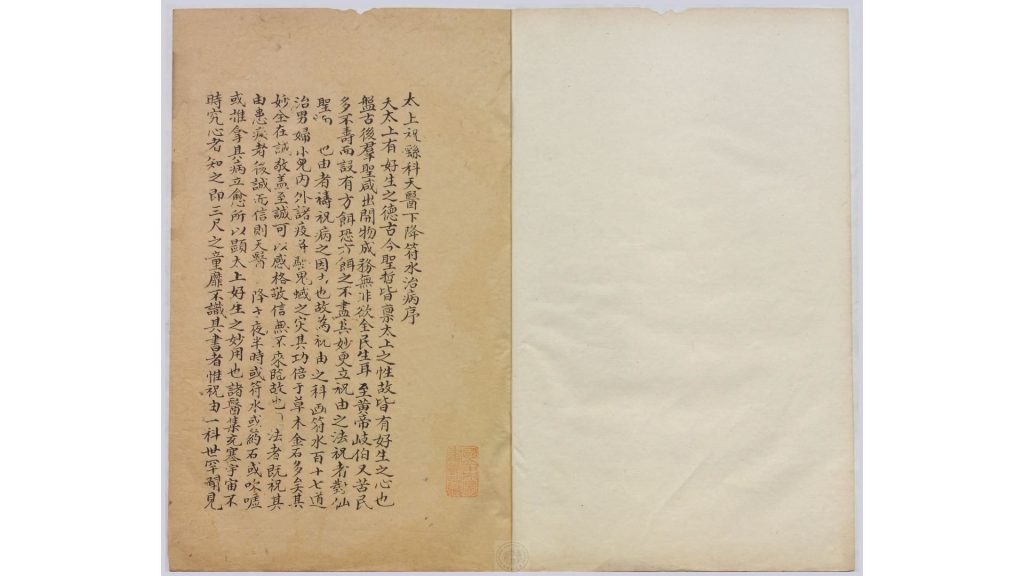 太上祝繇科天醫下降符水治病序
天太上有好生之德古今聖哲皆禀太上之性故皆有好生之心也
盤古後羣聖咸出開物成務無非欲全民生耳至黄帝岐伯又苦民
多不壽而設有方餌恐方餌之不盡其妙更立祝由之法祝者對仙
聖 也由者禱祝病之因 也故為祝由之科画符水百十七道
治男婦小兒内外諸疫并 鬼蜮之灾其功倍于草木金石多矣其
妙全在誠敬盖至誠可以感格敬信無不來臨故 法者既祝其
由患病者 誠而信則天醫 降於夜半時或符水或药石或吹噓
或推拿其病立愈所以顕太上好生之妙用也諸醫集充塞宇宙不
時究心者知之即三尺之童靡不識其書者惟祝由一科世罕聞見